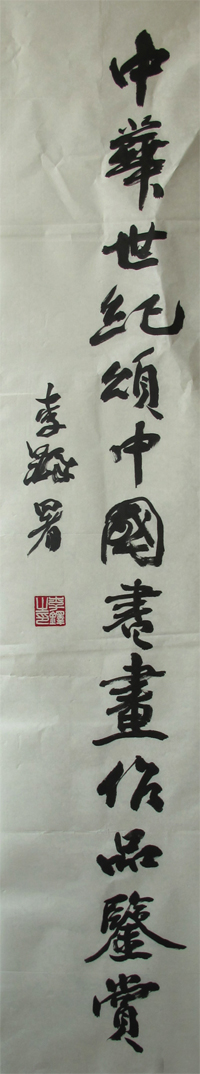 中華世紀頌中國書畫作品鑒賞
李鐸署
李鐸之印